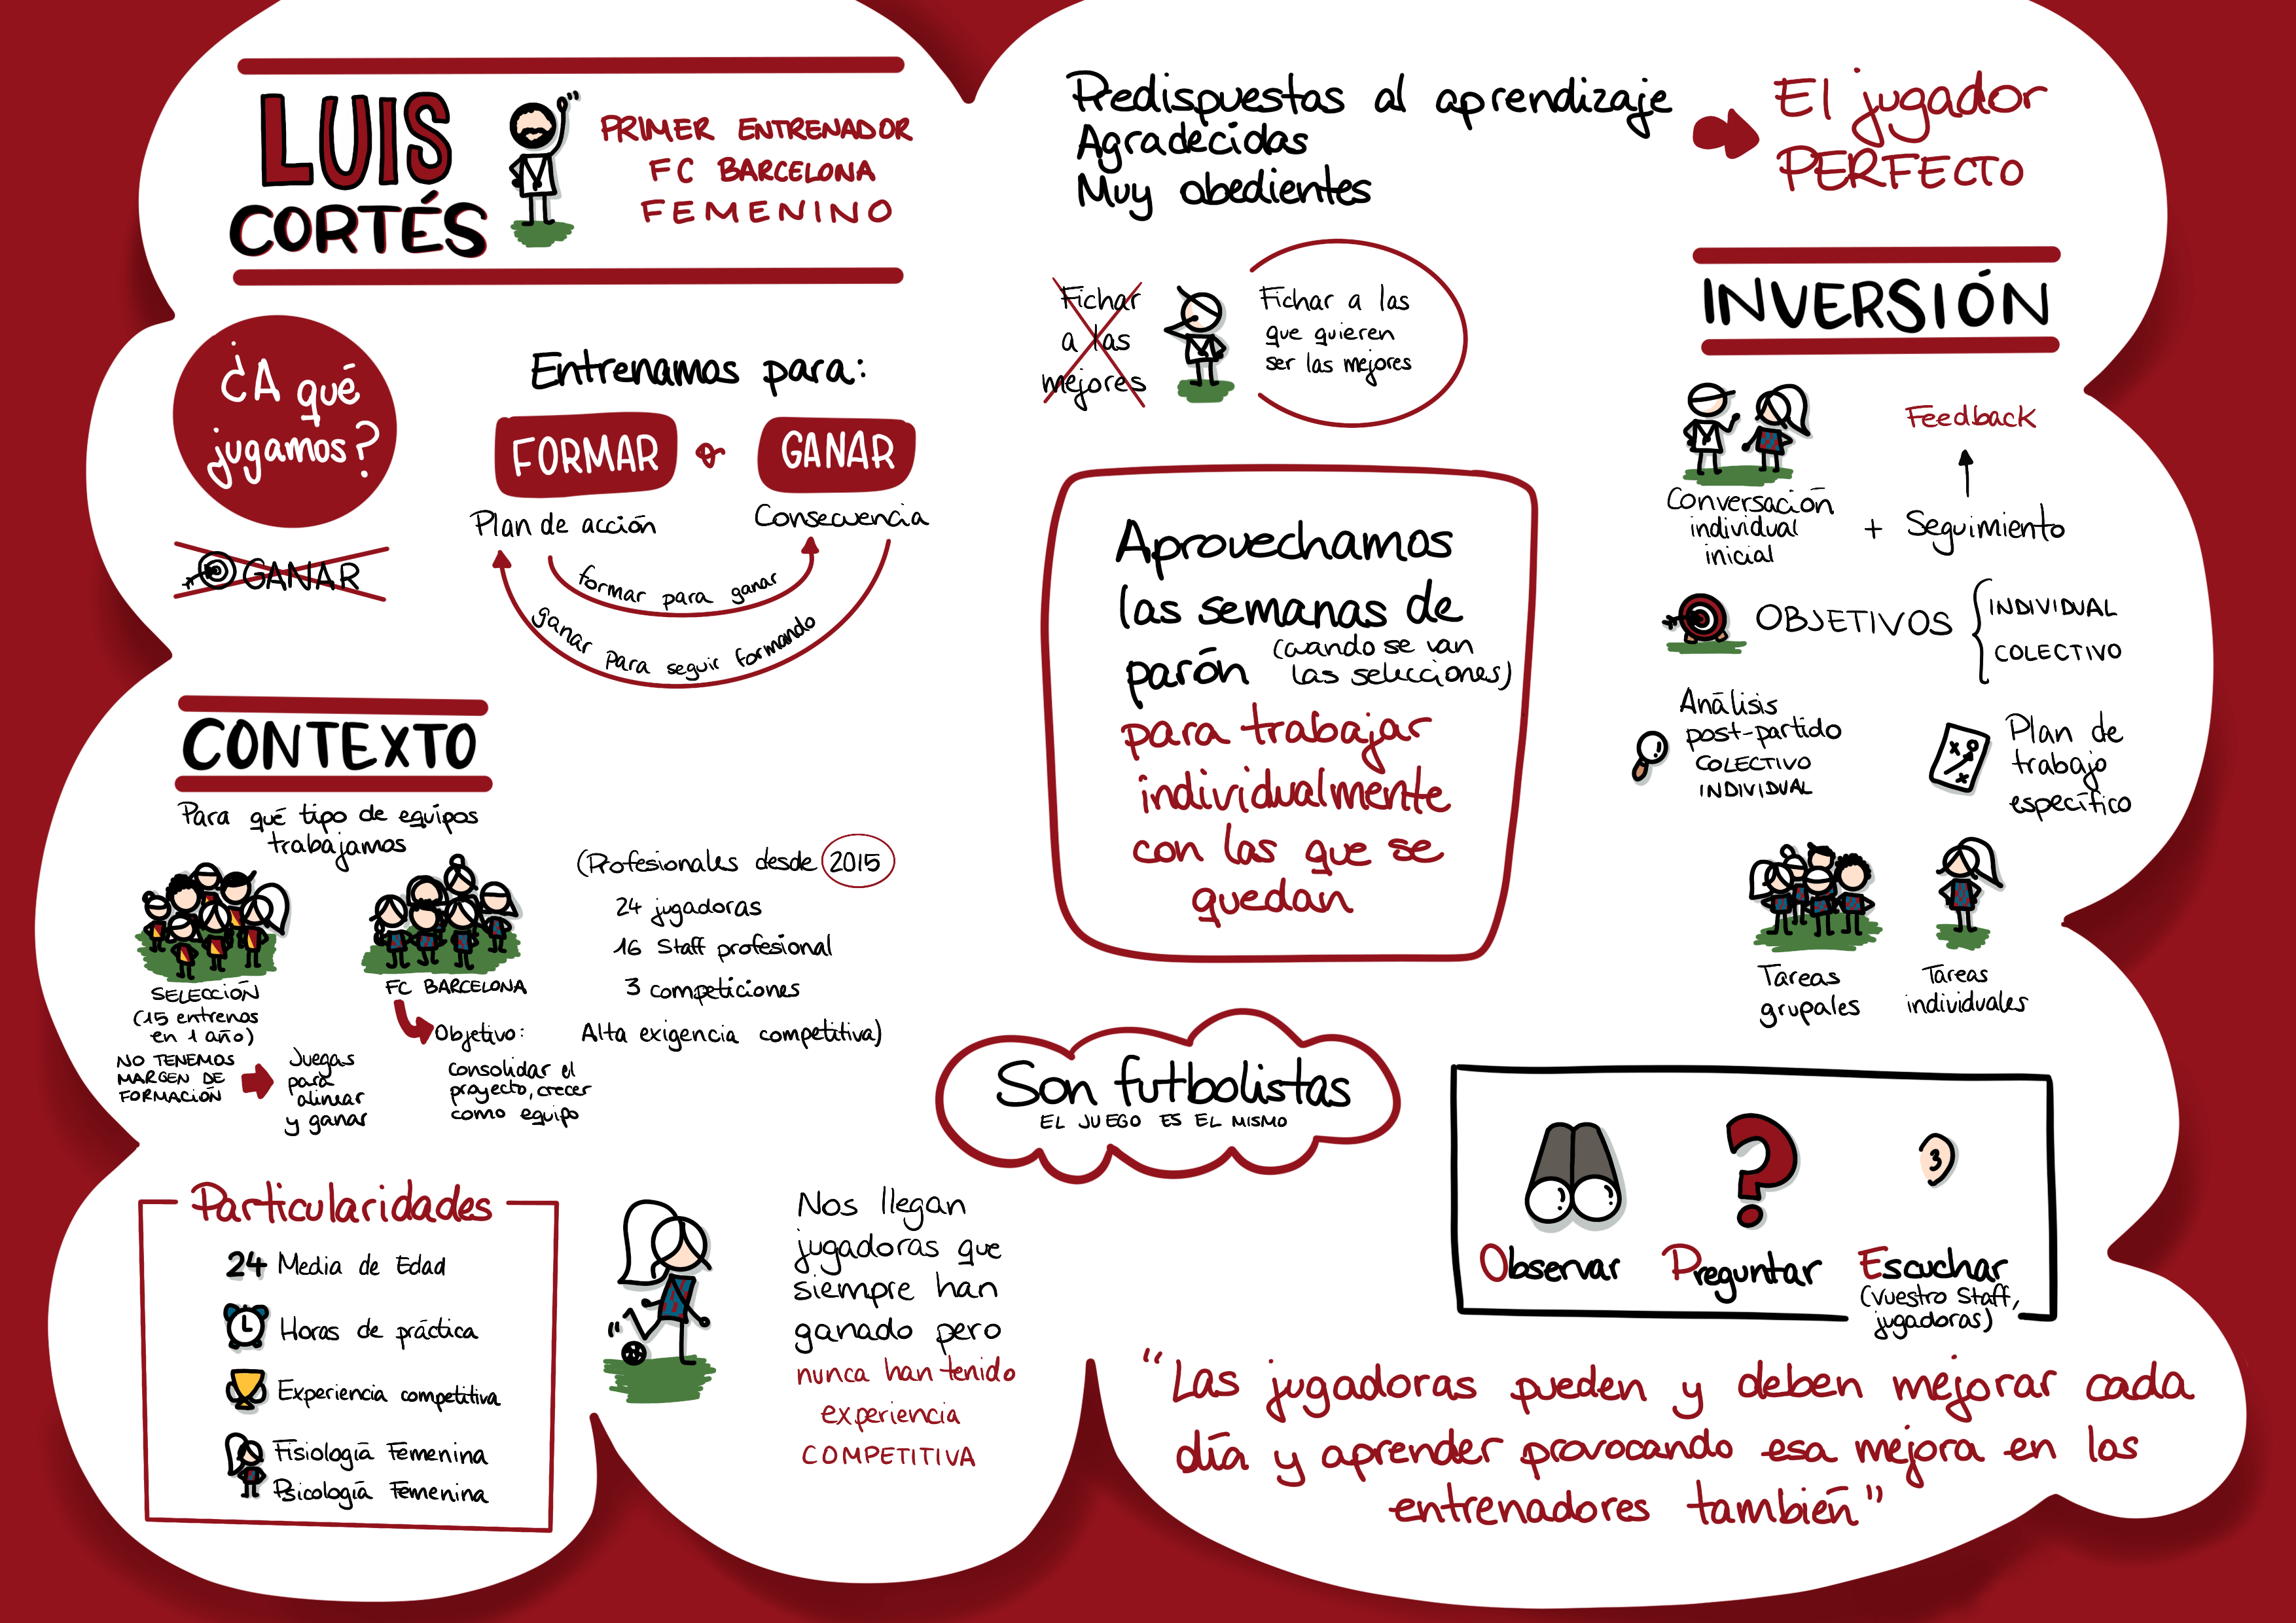 LUIS
CORTÉS
PRIMER ENTRENADOR
FC BARCELONA
FEMENINO
¿A qué
jugamos?
GANAR
Entrenamos para:
FORMAR o GANAR
Plan de acción
Consecuencia
formar para ganar
ganar para seguir formando
CONTEXTO
Para qué tipo de equipos
trabajamos
SELECCIÓN
(15 entrenos
en 1 año)
NO TENEMOS
MARGEN DE
FORMACIÓN
Juegas
para
alinear
y ganar
FC BARCELONA
Objetivo:
consolidar el
proyecto, crecer
como equipo
(Profesionales desde 2015
24 jugadoras
16 Staff profesional
3 competiciones
Alta exigencia competitiva)
Particularidades
24 Media de Edad
Horas de práctica
Experiencia competitiva
Fisiología Femenina
Psicología Femenina
Nos llegan
jugadoras que
siempre han
ganado pero
nunca han tenido
experiencia
COMPETITIVA
Predispuestas al aprendizaje
Agradecidas
Muy obedientes
El jugador
PERFECTO
Fichar
a las
mejores
Fichar a las
que quieren
ser las mejores
Aprovechamos
las semanas de
parón (cuando se van
las selecciones)
para trabajar
individualmente
con las que se
quedan
Son futbolistas
EL JUEGO ES EL MISMO
INVERSIÓN
Conversación
individual
inicial
+ Seguimiento
Feedback
OBJETIVOS
INDIVIDUAL
COLECTIVO
Análisis
post-partido
COLECTIVO
INDIVIDUAL
Plan de
trabajo
específico
Tareas
grupales
Tareas
individuales
?
Observar
Preguntar
Escuchar
(Vuestro Staff,
jugadoras)
“Las jugadoras pueden y deben mejorar cada
día y aprender provocando esa mejora en los
entrenadores también”